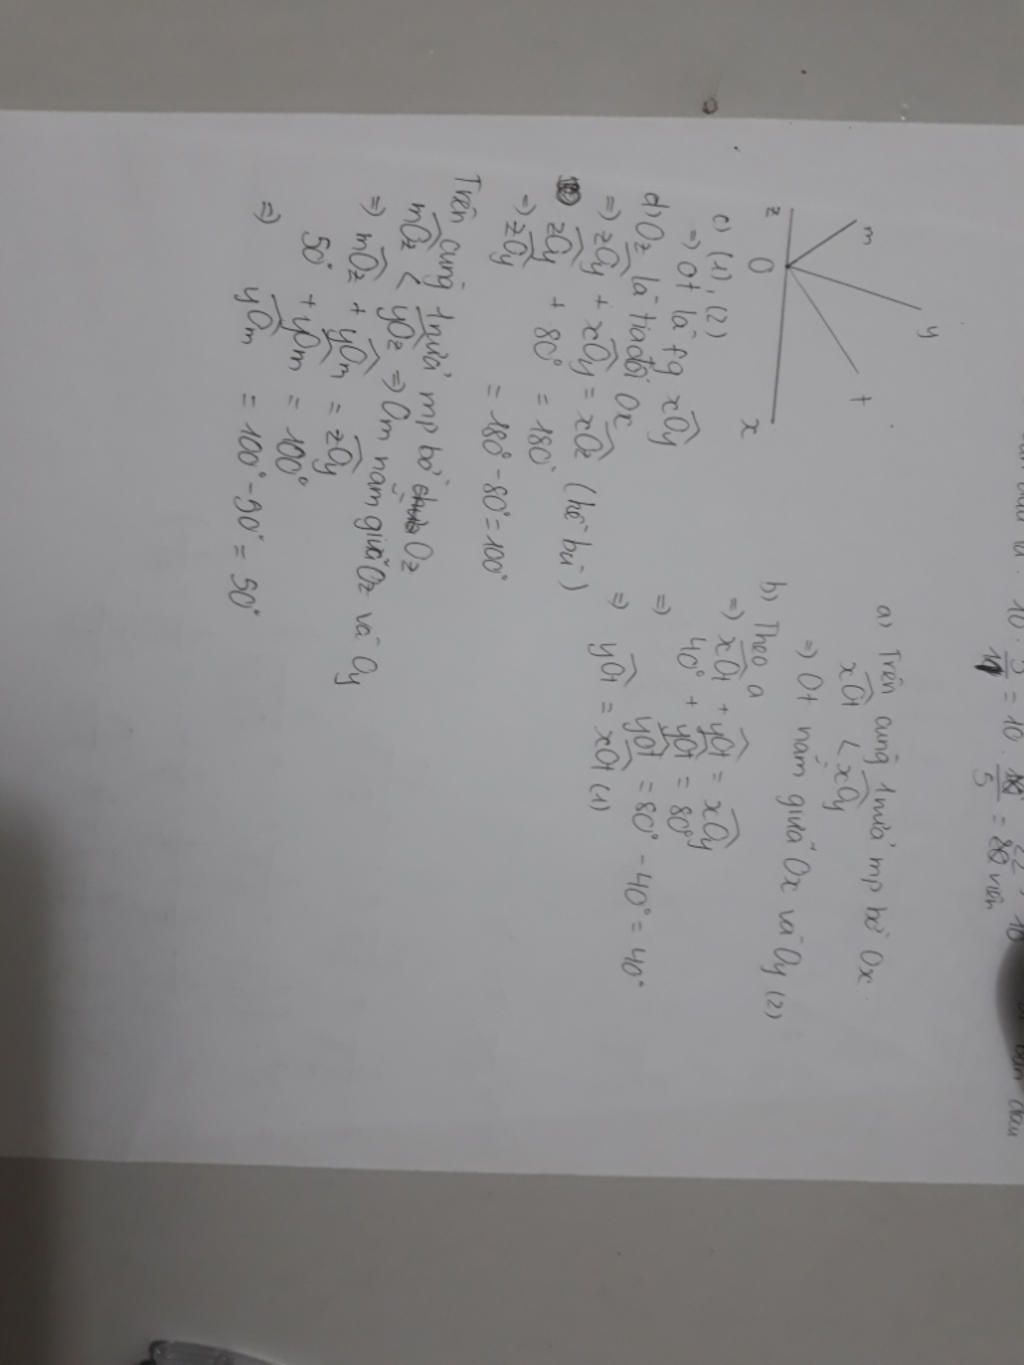 10 · = 10 · = nên
5
a) Trên cùng 1 nửa mp bờ Ox
xOt < xOy
=> Ot nằm giữa Ox và Oy (2)
b) Theo a
=> xOt + yOt = xOy
40° + yOt = 80°
=> yOt = 80° - 40° = 40°
=> yOt = xOt (1)
m
y
t
z
O
x
c) (1), (2)
=> Ot là fg xOy
d) Oz là tia đối Ox
=> zOy + xOy = xOz (kề bù)
zOy + 80° = 180°
=> zOy = 180° - 80° = 100°
Trên cùng 1 nửa mp bờ Oz
mOz < yOz => Om nằm giữa Oz và Oy
=> mOz + yOm = zOy
50° + yOm = 100°
=> yOm = 100° - 50° = 50°